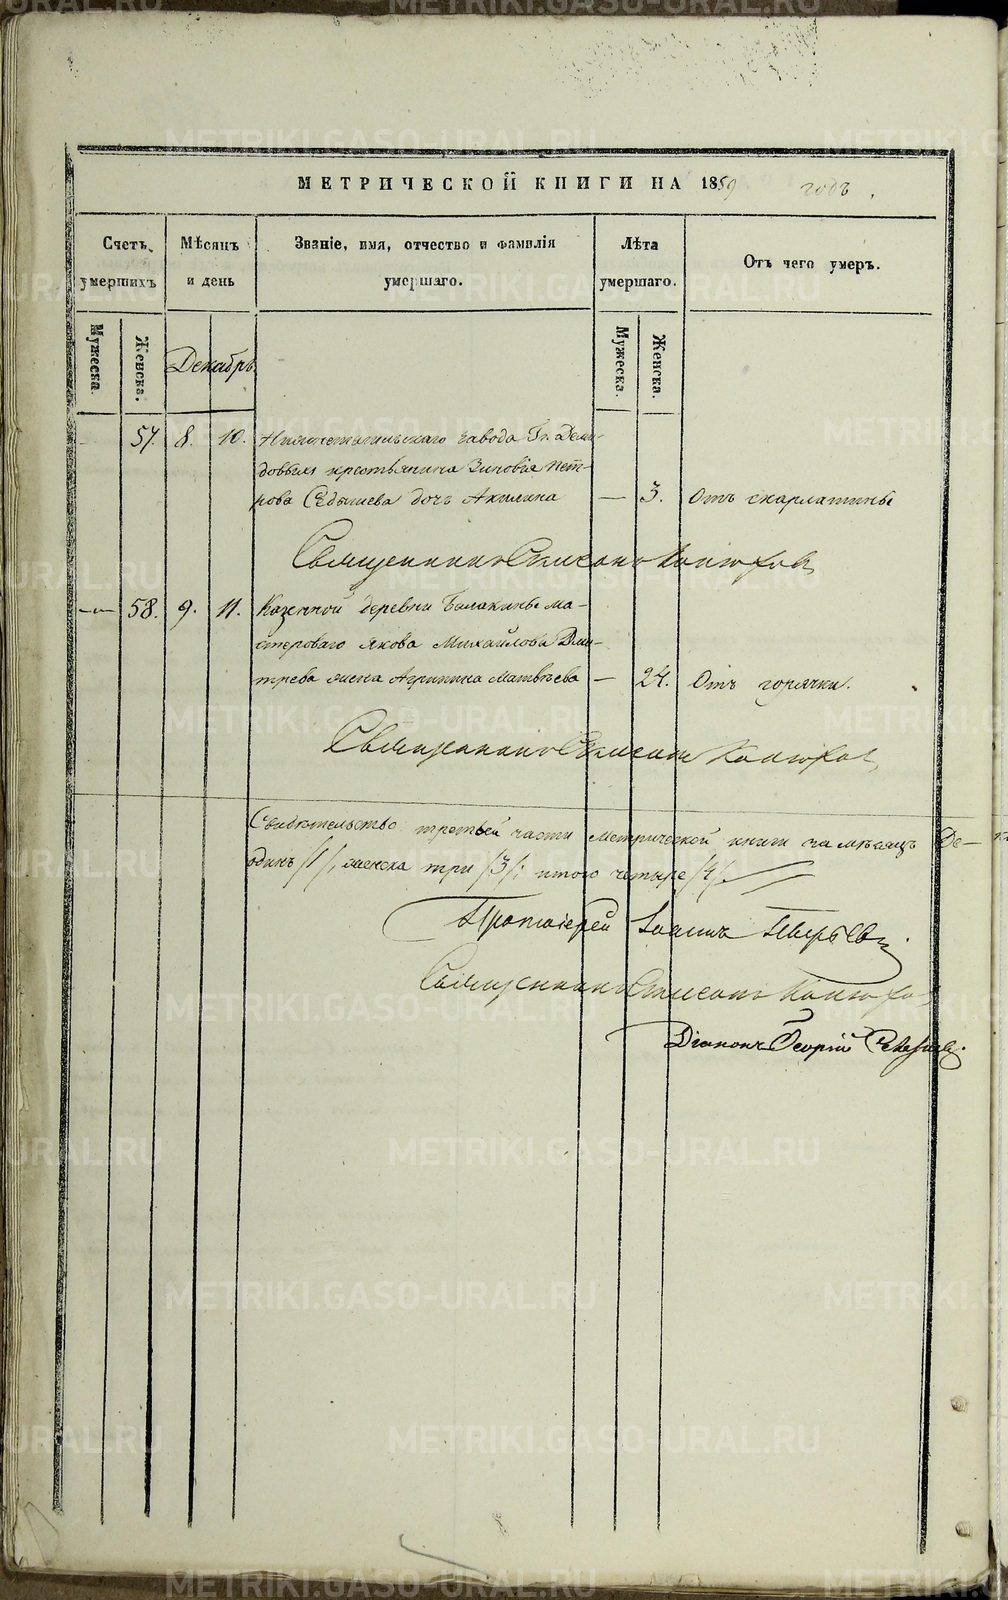 МЕТРИЧЕСКОЙ КНИГИ НА 1859 годъ.
Счетъ умершихъ
Мѣсяцъ и день
Званіе, имя, отчество и фамилія умершаго.
Лѣта умершаго.
Отъ чего умеръ.
Мужеска.
Женска.
Декабрь
Мужеска.
Женска.
57. 8. 10. Нижнетагильскаго завода Гг. Деми-
довыхъ крестьянина Зиновія Пет-
рова дочь Акилина — 3. Отъ скарлатины
Священникъ Симеонъ Конюховъ
— 58. 9. 11. Казенной деревни Балакины ма-
стероваго Якова Михайлова Дми-
трева жена Агрипина Матвѣева — 24. Отъ горячки.
Священникъ Симеонъ Конюховъ
Свидѣтельство третьей части метрической книги на мѣсяцъ Де-
одинъ /1/, женска три /3/; итого четыре /4/.
Протоіерей Іоаннъ
Священникъ Симеонъ Конюхо
Діаконъ Георгій
METRIKI.GASO-URAL.RU